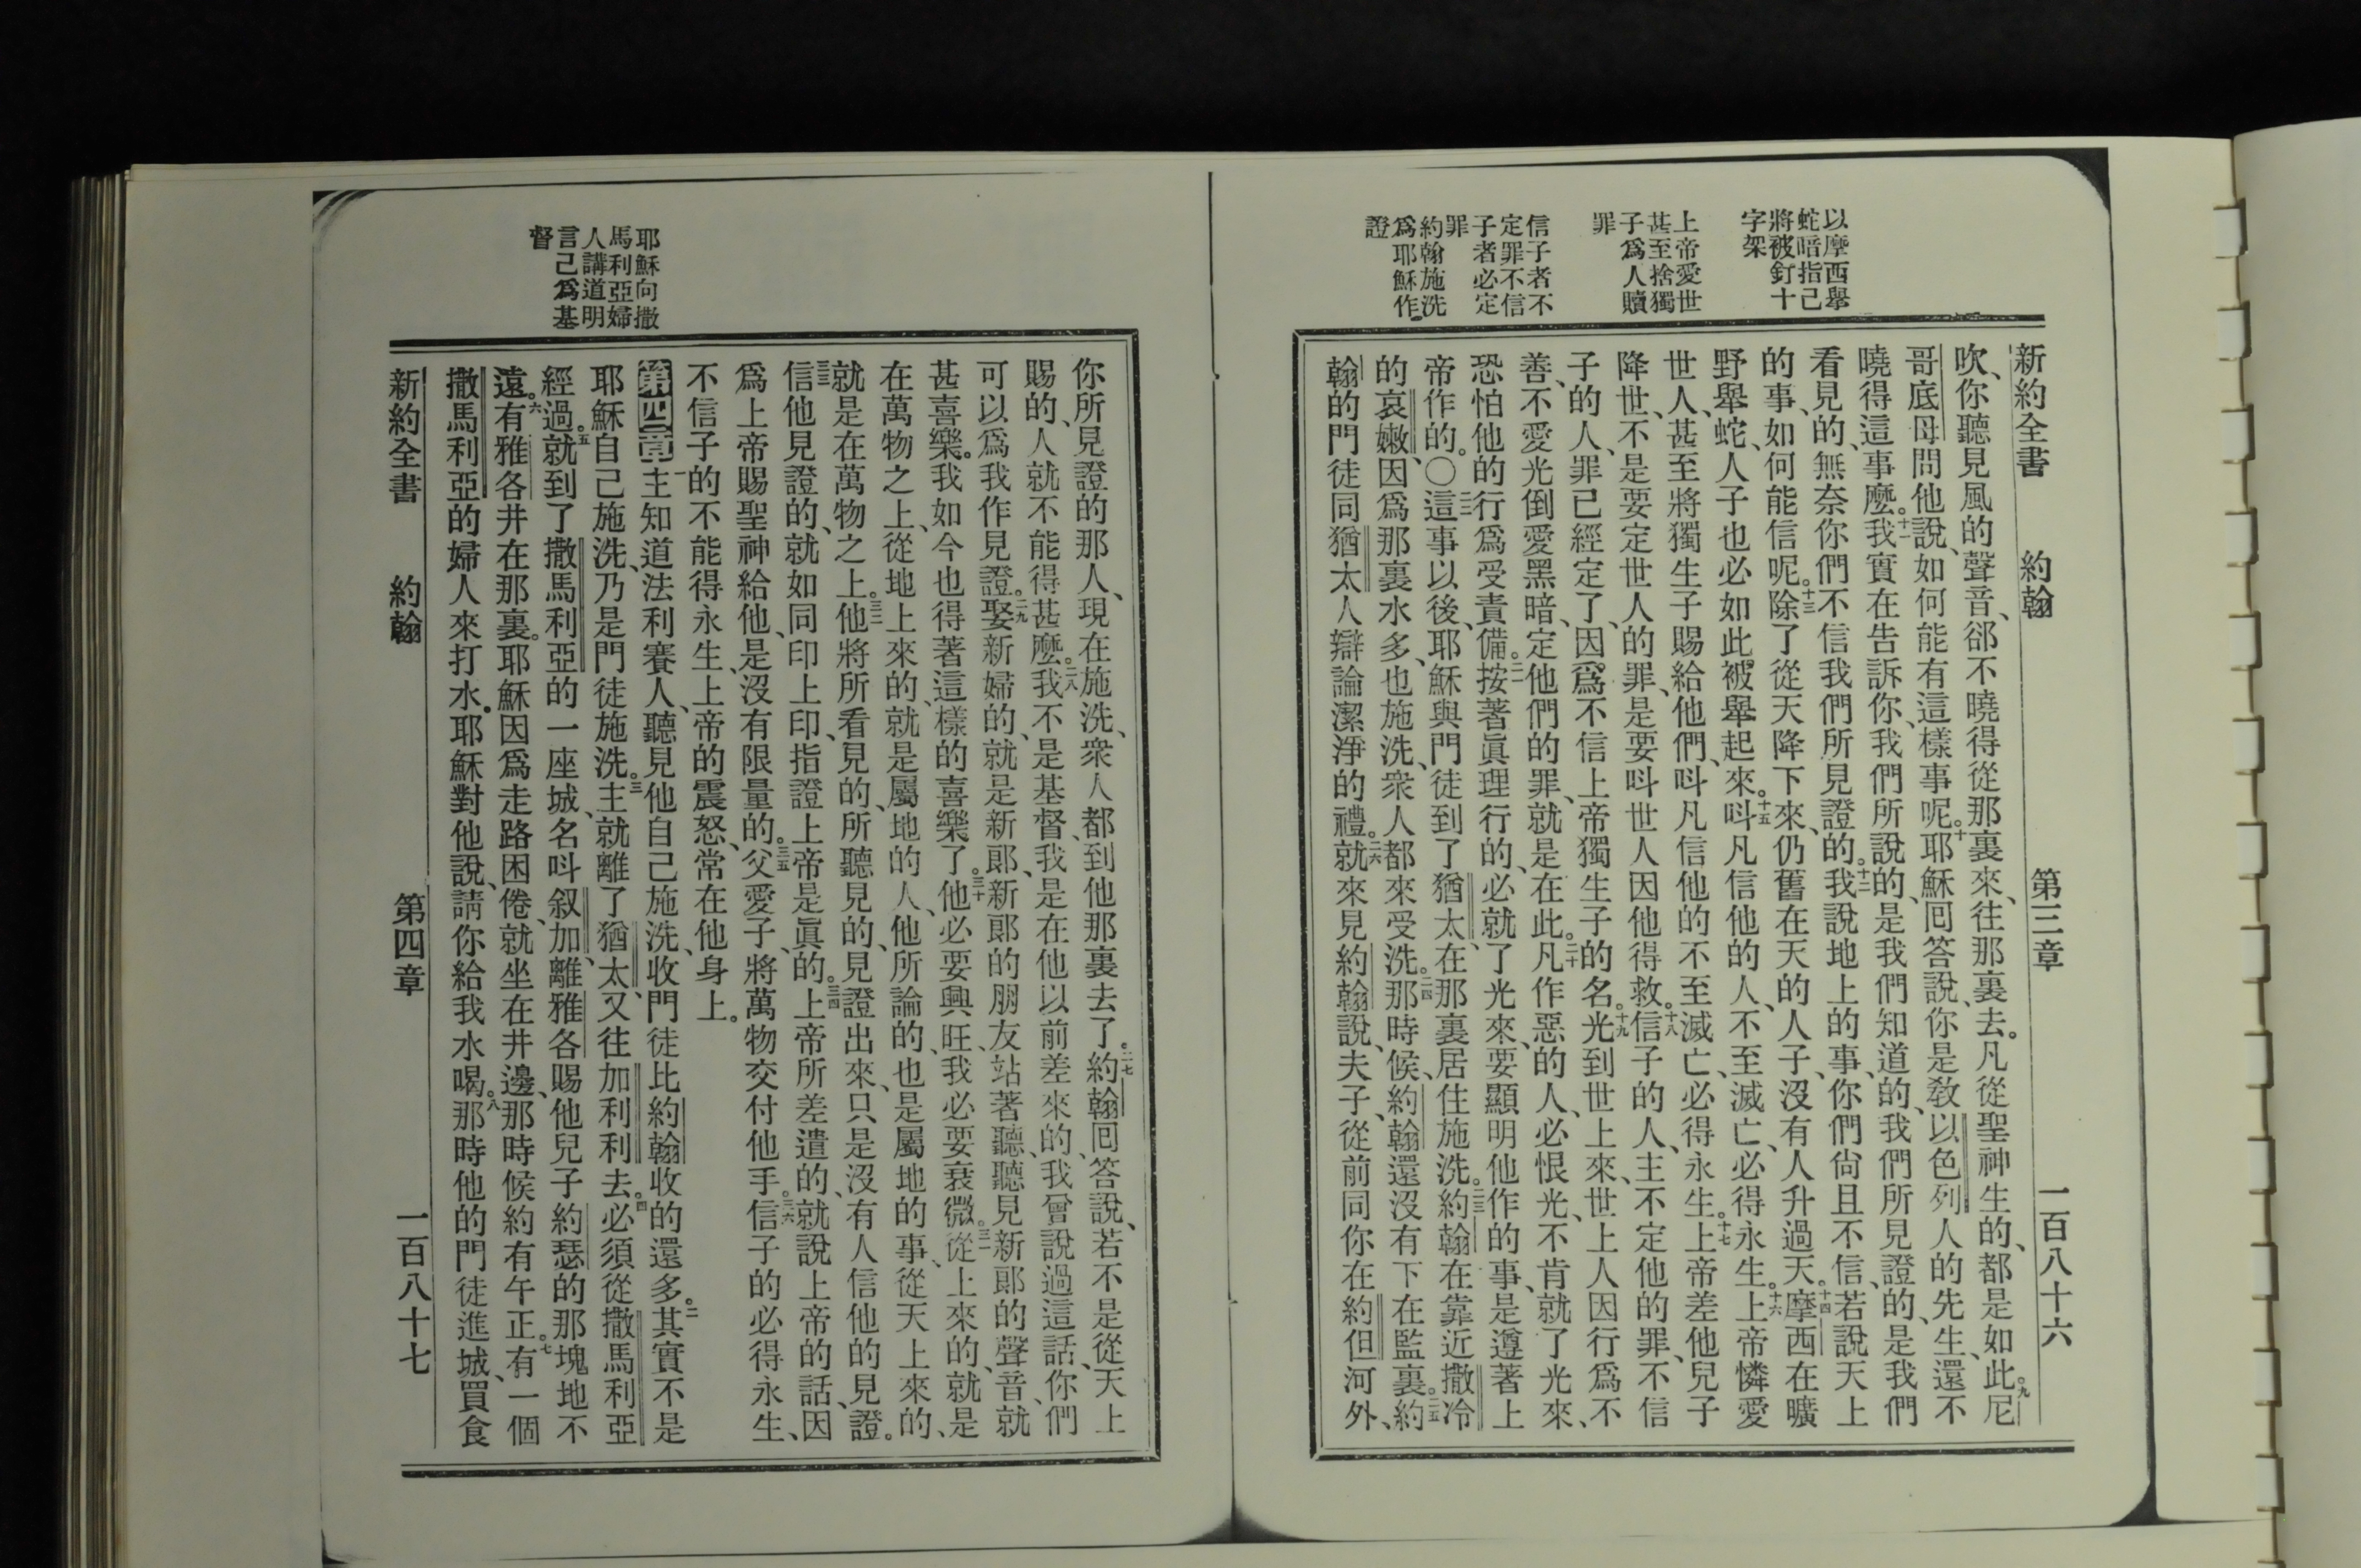 以摩西舉
蛇暗指己
將被釘十
字架
上帝愛世
甚至捨獨
子爲人贖
罪
信子者不
定罪不信
子者必定
罪
約翰施洗
爲耶穌作
證
新約全書 約翰 第三章 一百八十六
吹、你聽見風的聲音、郤不曉得從那裏來、往那裏去。凡從聖神生的、都是如此。九尼
哥底母問他說、如何能有這樣事呢。十耶穌囘答說、你是敎以色列人的先生、還不
曉得這事麼。十一我實在告訴你、我們所說的、是我們知道的、我們所見證的、是我們
看見的、無奈你們不信我們所見證的。十二我說地上的事、你們尙且不信、若說天上
的事、如何能信呢。十三除了從天降下來、仍舊在天的人子、沒有人升過天。十四摩西在曠
野舉蛇、人子也必如此被舉起來。十五呌凡信他的人、不至滅亡、必得永生。十六上帝憐愛
世人、甚至將獨生子賜給他們、呌凡信他的不至滅亡、必得永生。十七上帝差他兒子
降世、不是要定世人的罪、是要呌世人因他得救。十八信子的人、主不定他的罪、不信
子的人、罪已經定了、因爲不信上帝獨生子的名。十九光到世上來、世上人因行爲不
善、不愛光倒愛黑暗、定他們的罪、就是在此。二十凡作惡的人、必恨光、不肯就了光來、
恐怕他的行爲受責備。二一按著眞理行的、必就了光來、要顯明他作的事、是遵著上
帝作的。○二二這事以後、耶穌與門徒到了猶太、在那裏居住施洗。二三約翰在靠近撒冷
的哀嫩、因爲那裏水多、也施洗、衆人都來受洗。二四那時候、約翰還沒有下在監裏。二五約
翰的門徒同猶太人辯論潔淨的禮。二六就來見約翰說、夫子、從前同你在約但河外、
耶穌向撒
馬利亞婦
人講道明
言己爲基
督
你所見證的那人、現在施洗、衆人都到他那裏去了。二七約翰囘答說、若不是從天上
賜的、人就不能得甚麼。二八我不是基督、我是在他以前差來的、我曾說過這話、你們
可以爲我作見證。二九娶新婦的、就是新郞、新郞的朋友站著聽、聽見新郞的聲音、就
甚喜樂。我如今也得著這樣的喜樂了。三十他必要興旺、我必要衰微。三一從上來的、就是
在萬物之上、從地上來的、就是屬地的人、他所論的、也是屬地的事、從天上來的、
就是在萬物之上。三二他將所看見的、所聽見的、見證出來、只是沒有人信他的見證。
三三信他見證的、就如同印上印、指證上帝是眞的。三四上帝所差遣的、就說上帝的話、因
爲上帝賜聖神給他、是沒有限量的。三五父愛子、將萬物交付他手。三六信子的必得永生、
不信子的不能得永生、上帝的震怒、常在他身上。
第四章一主知道法利賽人、聽見他自己施洗、收門徒比約翰收的還多。二其實不是
耶穌自己施洗、乃是門徒施洗。三主就離了猶太、又往加利利去。四必須從撒馬利亞
經過。五就到了撒馬利亞的一座城、名呌叙加、離雅各賜他兒子約瑟的那塊地不
遠。六有雅各井在那裏。耶穌因爲走路困倦、就坐在井邊、那時候約有午正。七有一個
撒馬利亞的婦人來打水。耶穌對他說、請你給我水喝。八那時他的門徒進城、買食
新約全書 約翰 第四章 一百八十七